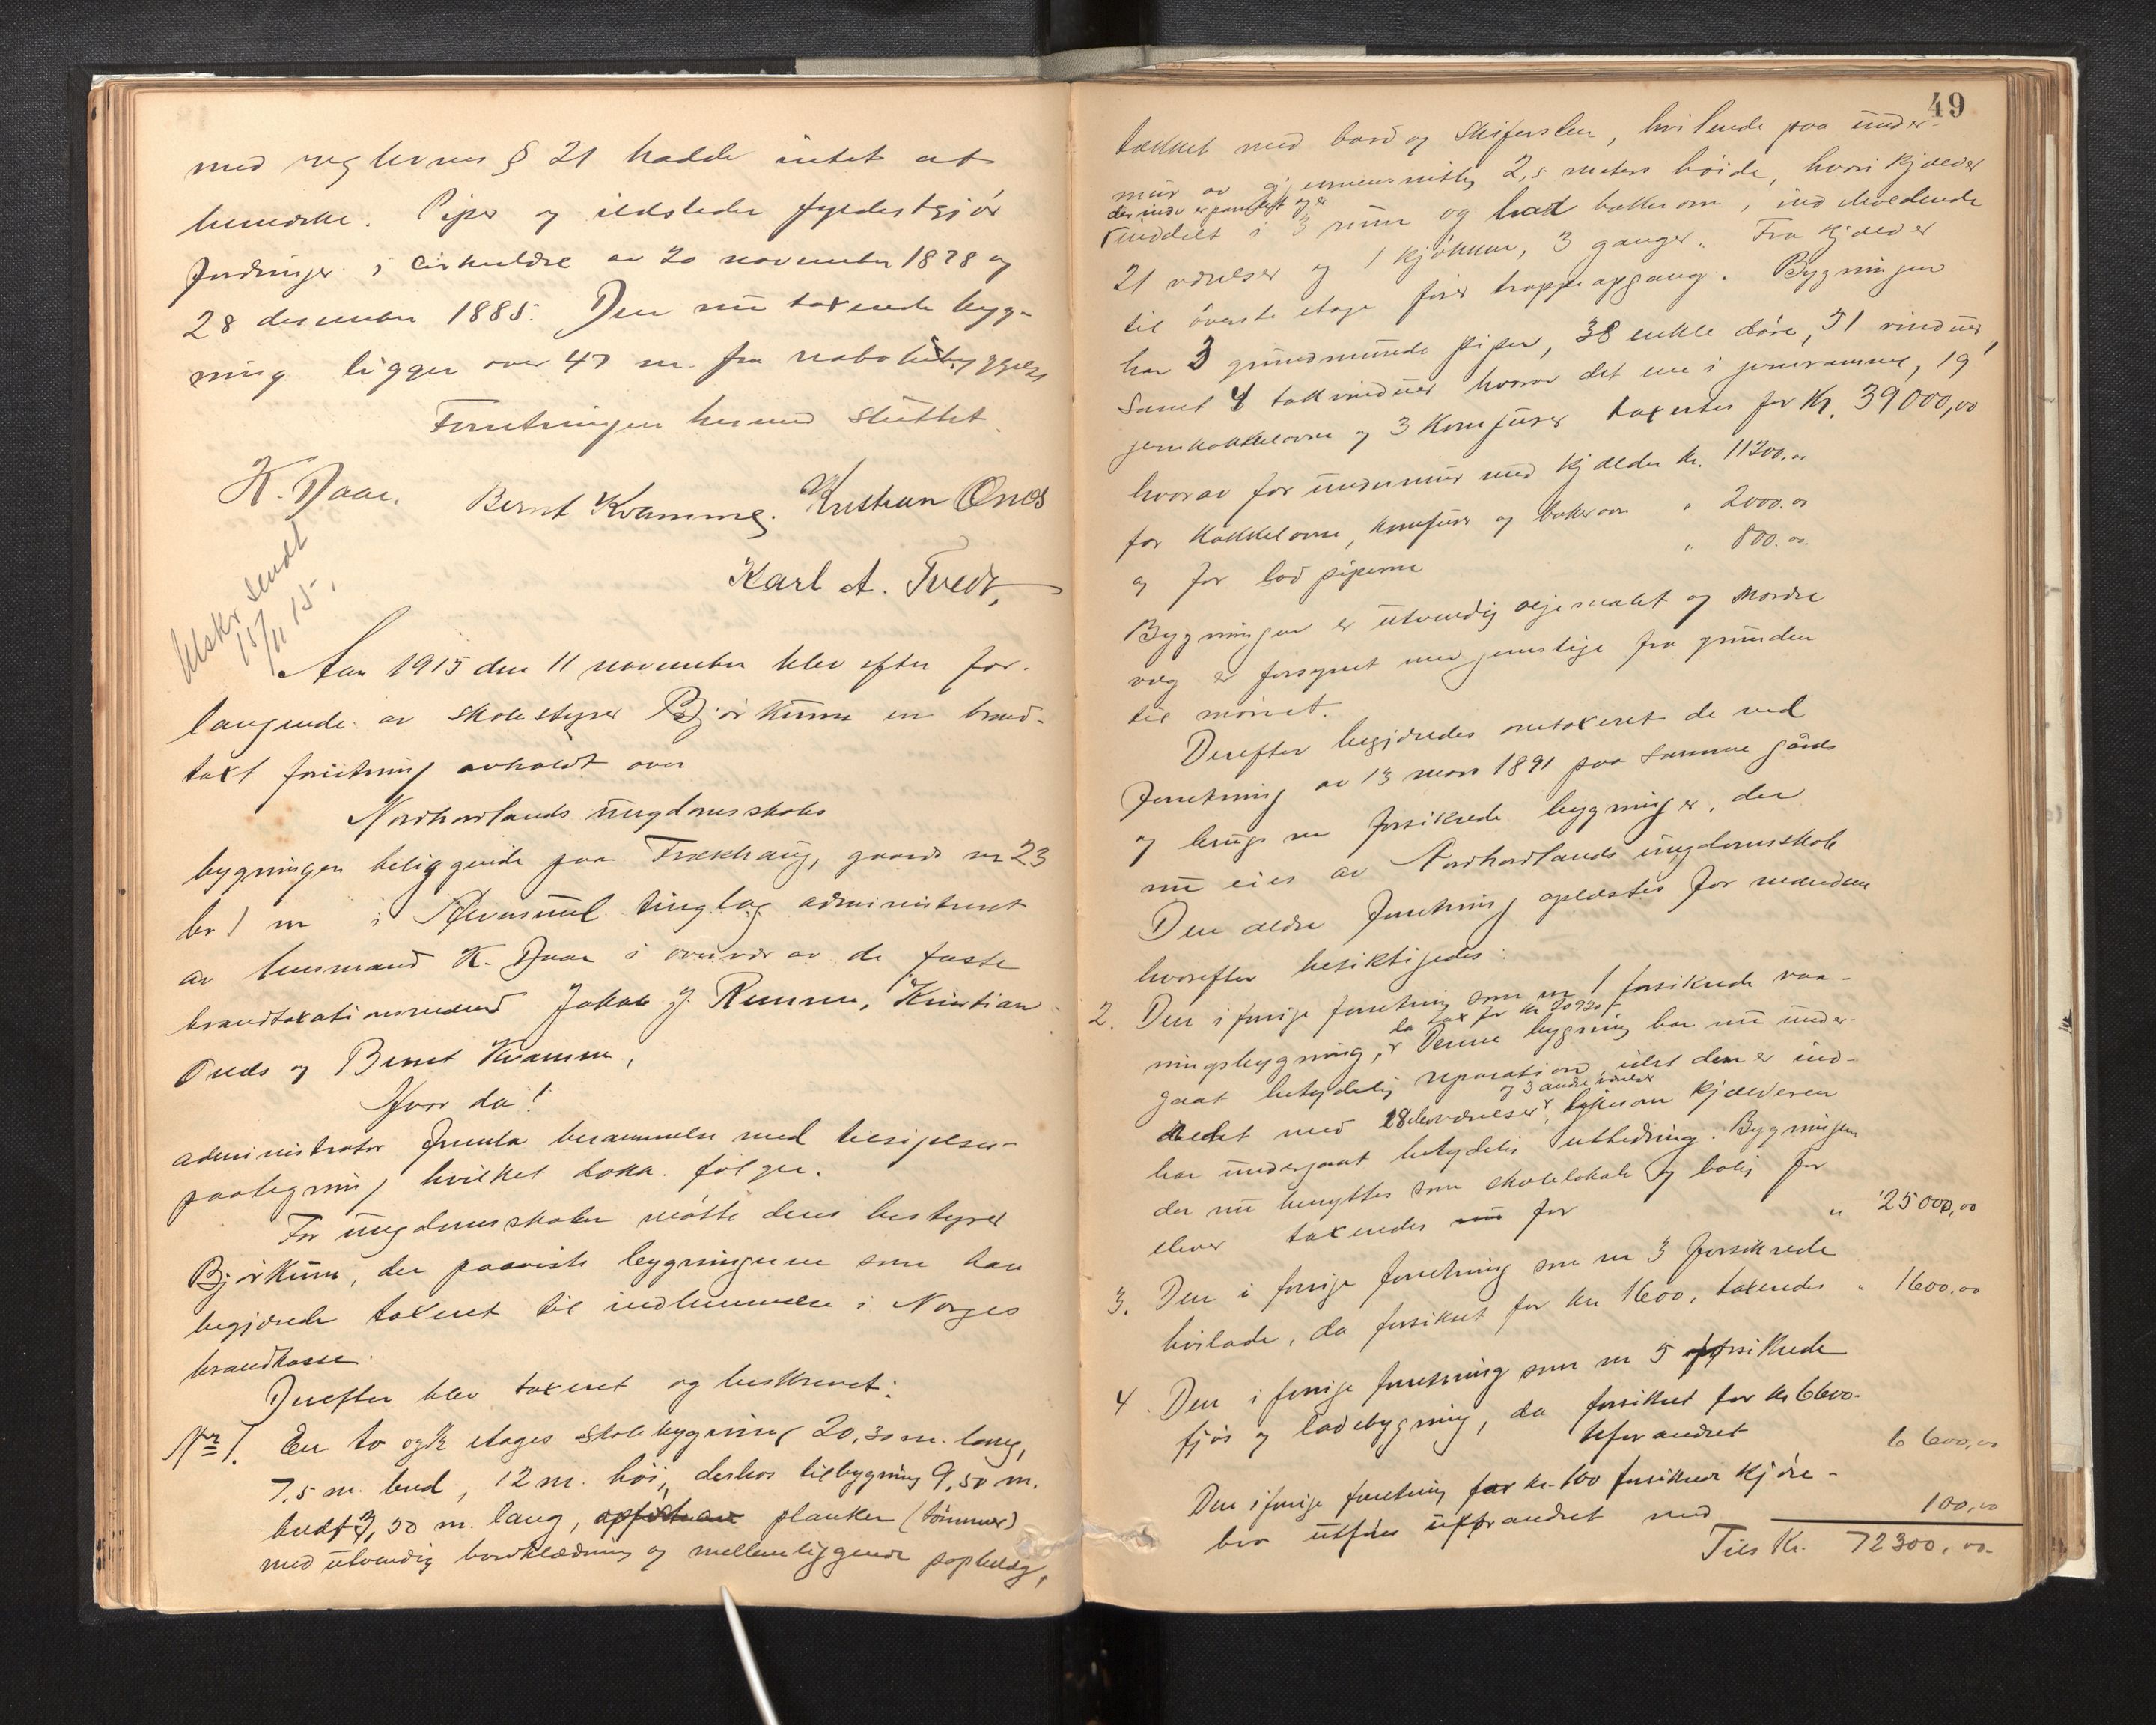 med reglernes § 21 hadde intet at
bemerke. Piper og ildsteder fyldestgjør
fordringer i cirkulære av 20 november 1878 og
28 desember 1885. Den nu taxerede byg-
ning ligger over 47 m. fra nabobebyggelse
Forretningen hermed sluttet.
K. Daae. Bernt Kvamme. Kristian Oneds
Karl A. Tvedt,
Utskr sendt
15/11 15.
Aar 1915 den 11 november blev efter for-
langende av skolestyrer Bjørkum en brand-
taxt forretning avholdt over
Nordhordlands ungdomsskoles
bygninger beliggende paa Frekhaug, gaards nr 23
br 1 nr i tinglag administreret
av lensmand K. Daae i overvær av de faste
brandtaxationsmænd Jakob J. Kristian
Oneds og Bernt Kvamme,
Hvor da!
administrator fremla berammelse med tilsigelses-
paategning hvilket dokk. følger.
For ungdomsskolen møtte dens bestyrer
Bjørkum, der paaviste bygningerne som han
begjærede taxeret til indlemmelse i Norges
brandkasse.
Derefter blev taxeret og beskrevet:
Nr 1. En to og ½ etages skolebygning 20,30 m. lang,
7,5 m. bred, 12 m. høi, derhos tilbygning 9,50 m.
bred 3,50 m. lang, planker (tømmer)
med utvendig bordklædning og mellemliggende papbelæg,
49
tækket med bord og skifersten, hvilende paa under-
mur av gjennemsnitlig 2,5 meters høide, hvori kjælder
der indv er panelet og er
inddelt i 3 rum og had bakkerom, indeholdende
21 værelser og 1 kjøkken, 3 ganger. Fra kjælder
til øverste etage fører trappeopgang. Bygningen
har 3 grundmurede piper, 38 enkle døre, 51 vinduer,
samt 4 takvinduer hvorav det ene i jernramme, 19
jernkakkelovne og 3 komfurer taxertes for Kr. 39000,00
hvorav for undermur med kjælder kr. 11200,00
for kakkelovne, komfurer og bakerovn " 2000.00
og for lod piperne " 800.00.
Bygningen er utvendig oljemalet og nordre
væg er forsynet med jernstige fra grunden
til mønet.
Derefter begjæredes omtaxeret de ved
forretning av 13 mars 1891 paa samme gårds
og brugs nr forsikrede bygninger, der
nu eies av Nordhordlands ungdomsskole
Den ældre forretning oplæstes for mændene
hvorefter besiktigedes:
2. Den i forrige forretning som nr 1 forsikrede vaa-
da tax for kr 20920
ningsbygning, Denne bygning har nu under-
gaat betydelig reparation idet den er ind-
og 3 andre værelser
redet med 18 elevværelser, likesom kjælderen
har undergaat betydelig utbedring. Bygningen
der nu benyttes som skolelokale og bolig for
elever taxeredes nu for " 25000,00
3. Den i forrige forretning som nr 3 forsikrede
hvilade, da forsikret for kr 1600, taxeredes " 1600,00
4. Den i forrige forretning som nr 5 forsikrede
fjøs og ladebygning, da forsikret for kr 6600-
uforandret 6600,00
Den i forrige forretning for kr. 100 forsikrede kjøre-
bro utføres uforandret med 100,00
Tils Kr. 72300,00